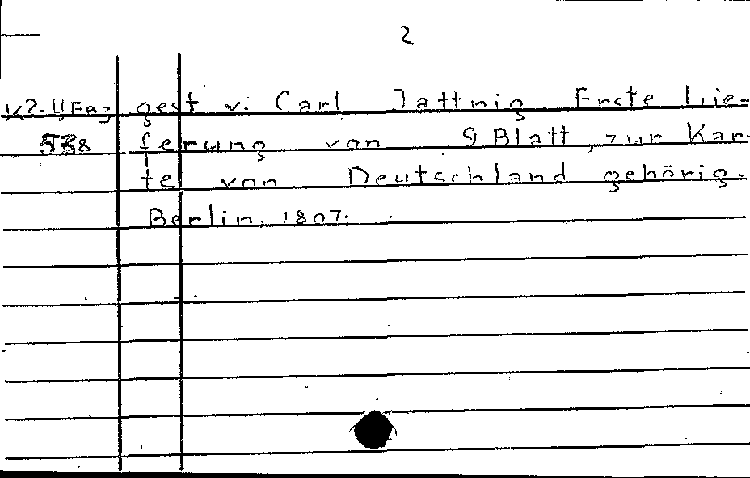 2
gest v. Carl Jattnig Erste Lie=
538 ferung von 9 Blatt, zur Kar-
te von Deutschland gehörig.
Berlin, 1807.